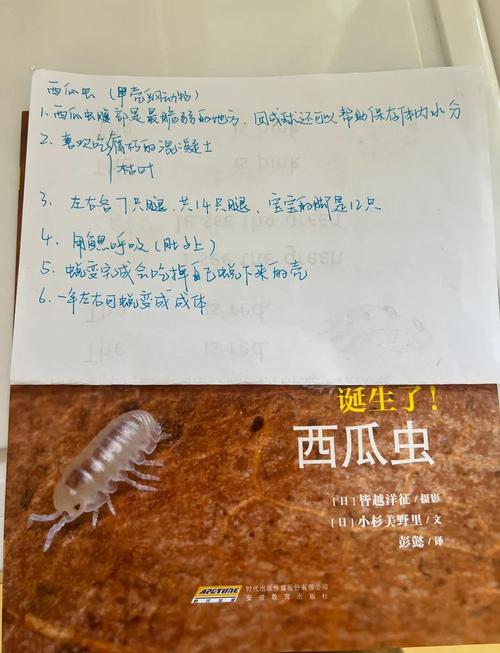 西瓜虫 （甲壳纲动物）
1. 西瓜虫腹部是最脆弱的地方，因成球还可以帮助保存体内水分
2. 喜欢吃腐朽的混凝土
枯叶
3. 左右各7只腿，共14只腿、宝宝的脚是12只
4. 用鳃呼吸（肚上）
5. 蜕变完成会吃掉自己蜕下来的壳
6. 一年左右因蜕变成成体
is pink
see the green
the green
The is red.
The is red.
诞生了！
西瓜虫
［日］皆越洋征／摄影
［日］小杉美野里／文
彭懿／译
ARCTIME 时代出版传媒股份有限公司
时代出版 安徽教育出版社